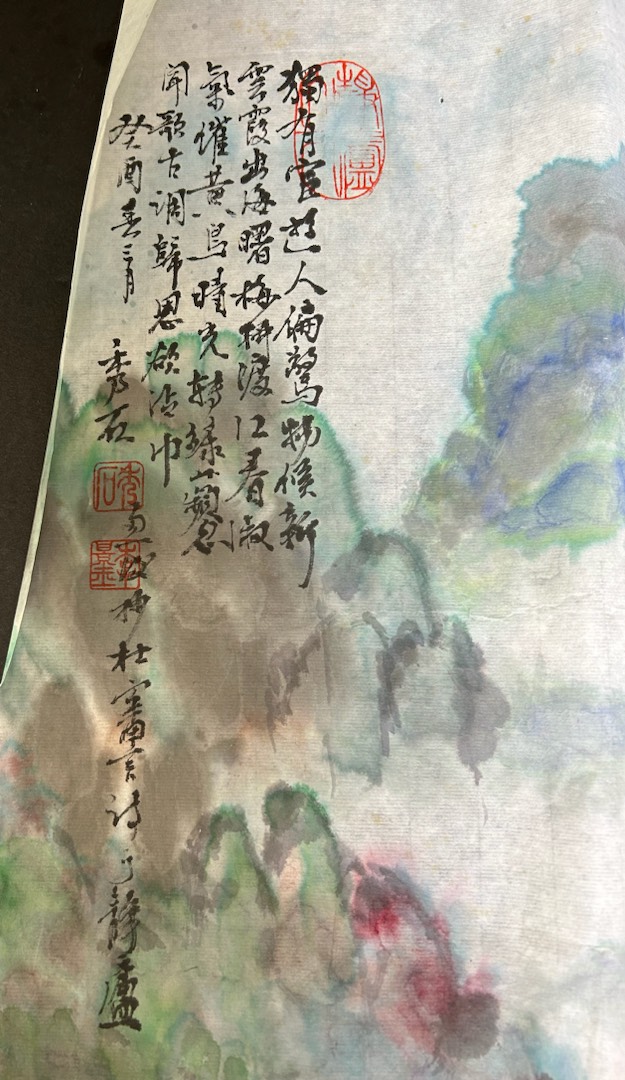 獨有宦遊人偏驚物候新
雲霞出海曙梅柳渡江春淑
氣催黃鳥晴光轉綠蘋忽
聞歌古調歸思欲沾巾
癸酉春三月 秀石 抄杜審言詩于靜廬
秀石